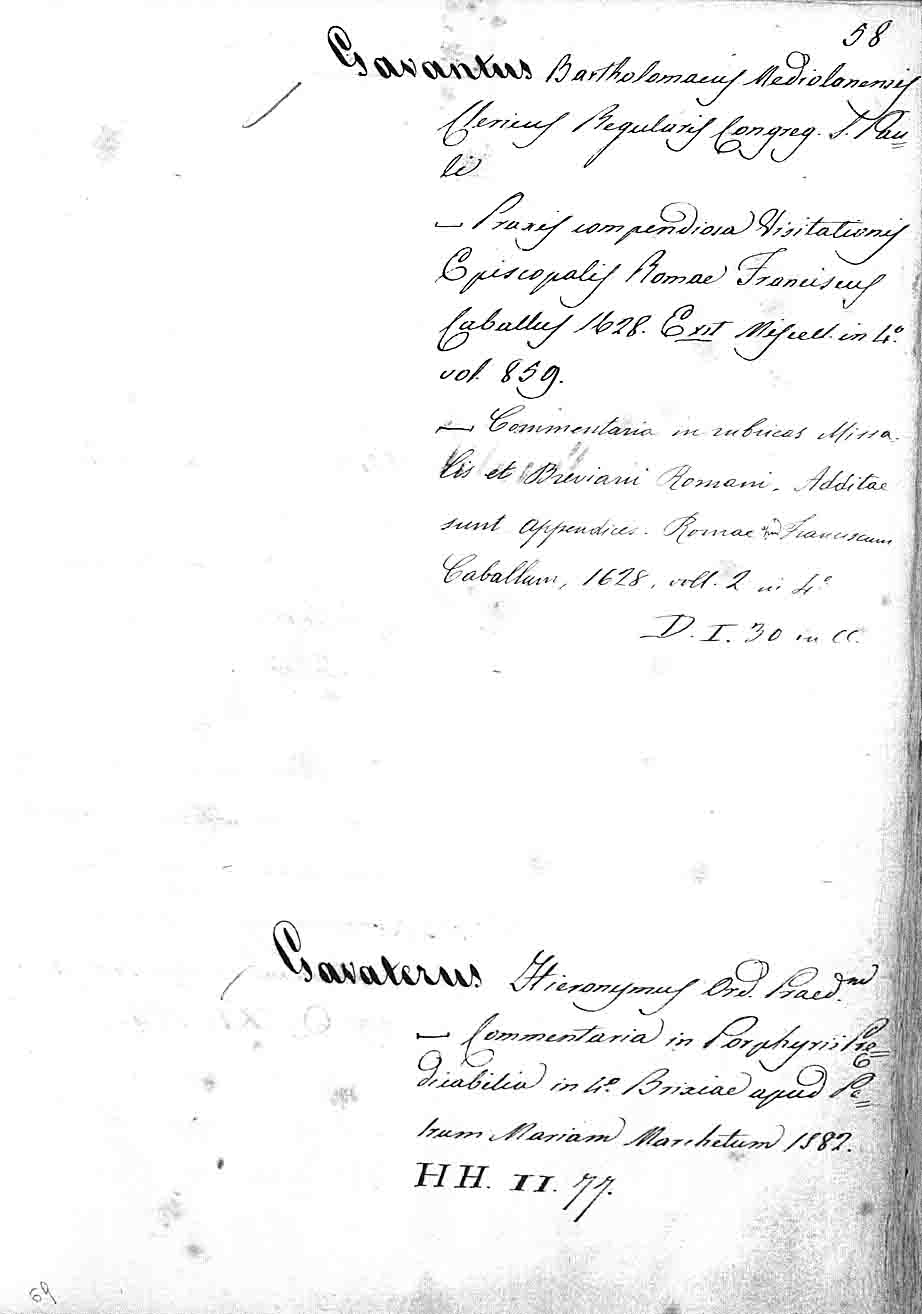 58
Gavantus Bartholomaeus Mediolanensis
Clericus Regularis Congreg. S. Pau=
li
— Praxis compendiosa Visitationis
Episcopalis Romae Franciscus
Caballus 1628. Exit Miscell. in 4.o
vol. 859.
— Commentaria in rubricas Missa-
lis et Breviarii Romani. Additae
sunt appendices. Romae Franciscum
Caballum, 1628, voll. 2 in 4.o
D. I. 30 in CC.
Gavaterus Hieronymus Ord. Praed.
— Commentaria in Porphyrii Pre=
dicabilia in 4.o Brixiae apud Pe=
trum Mariam Marchetum 1582.
HH. II. 77.
69